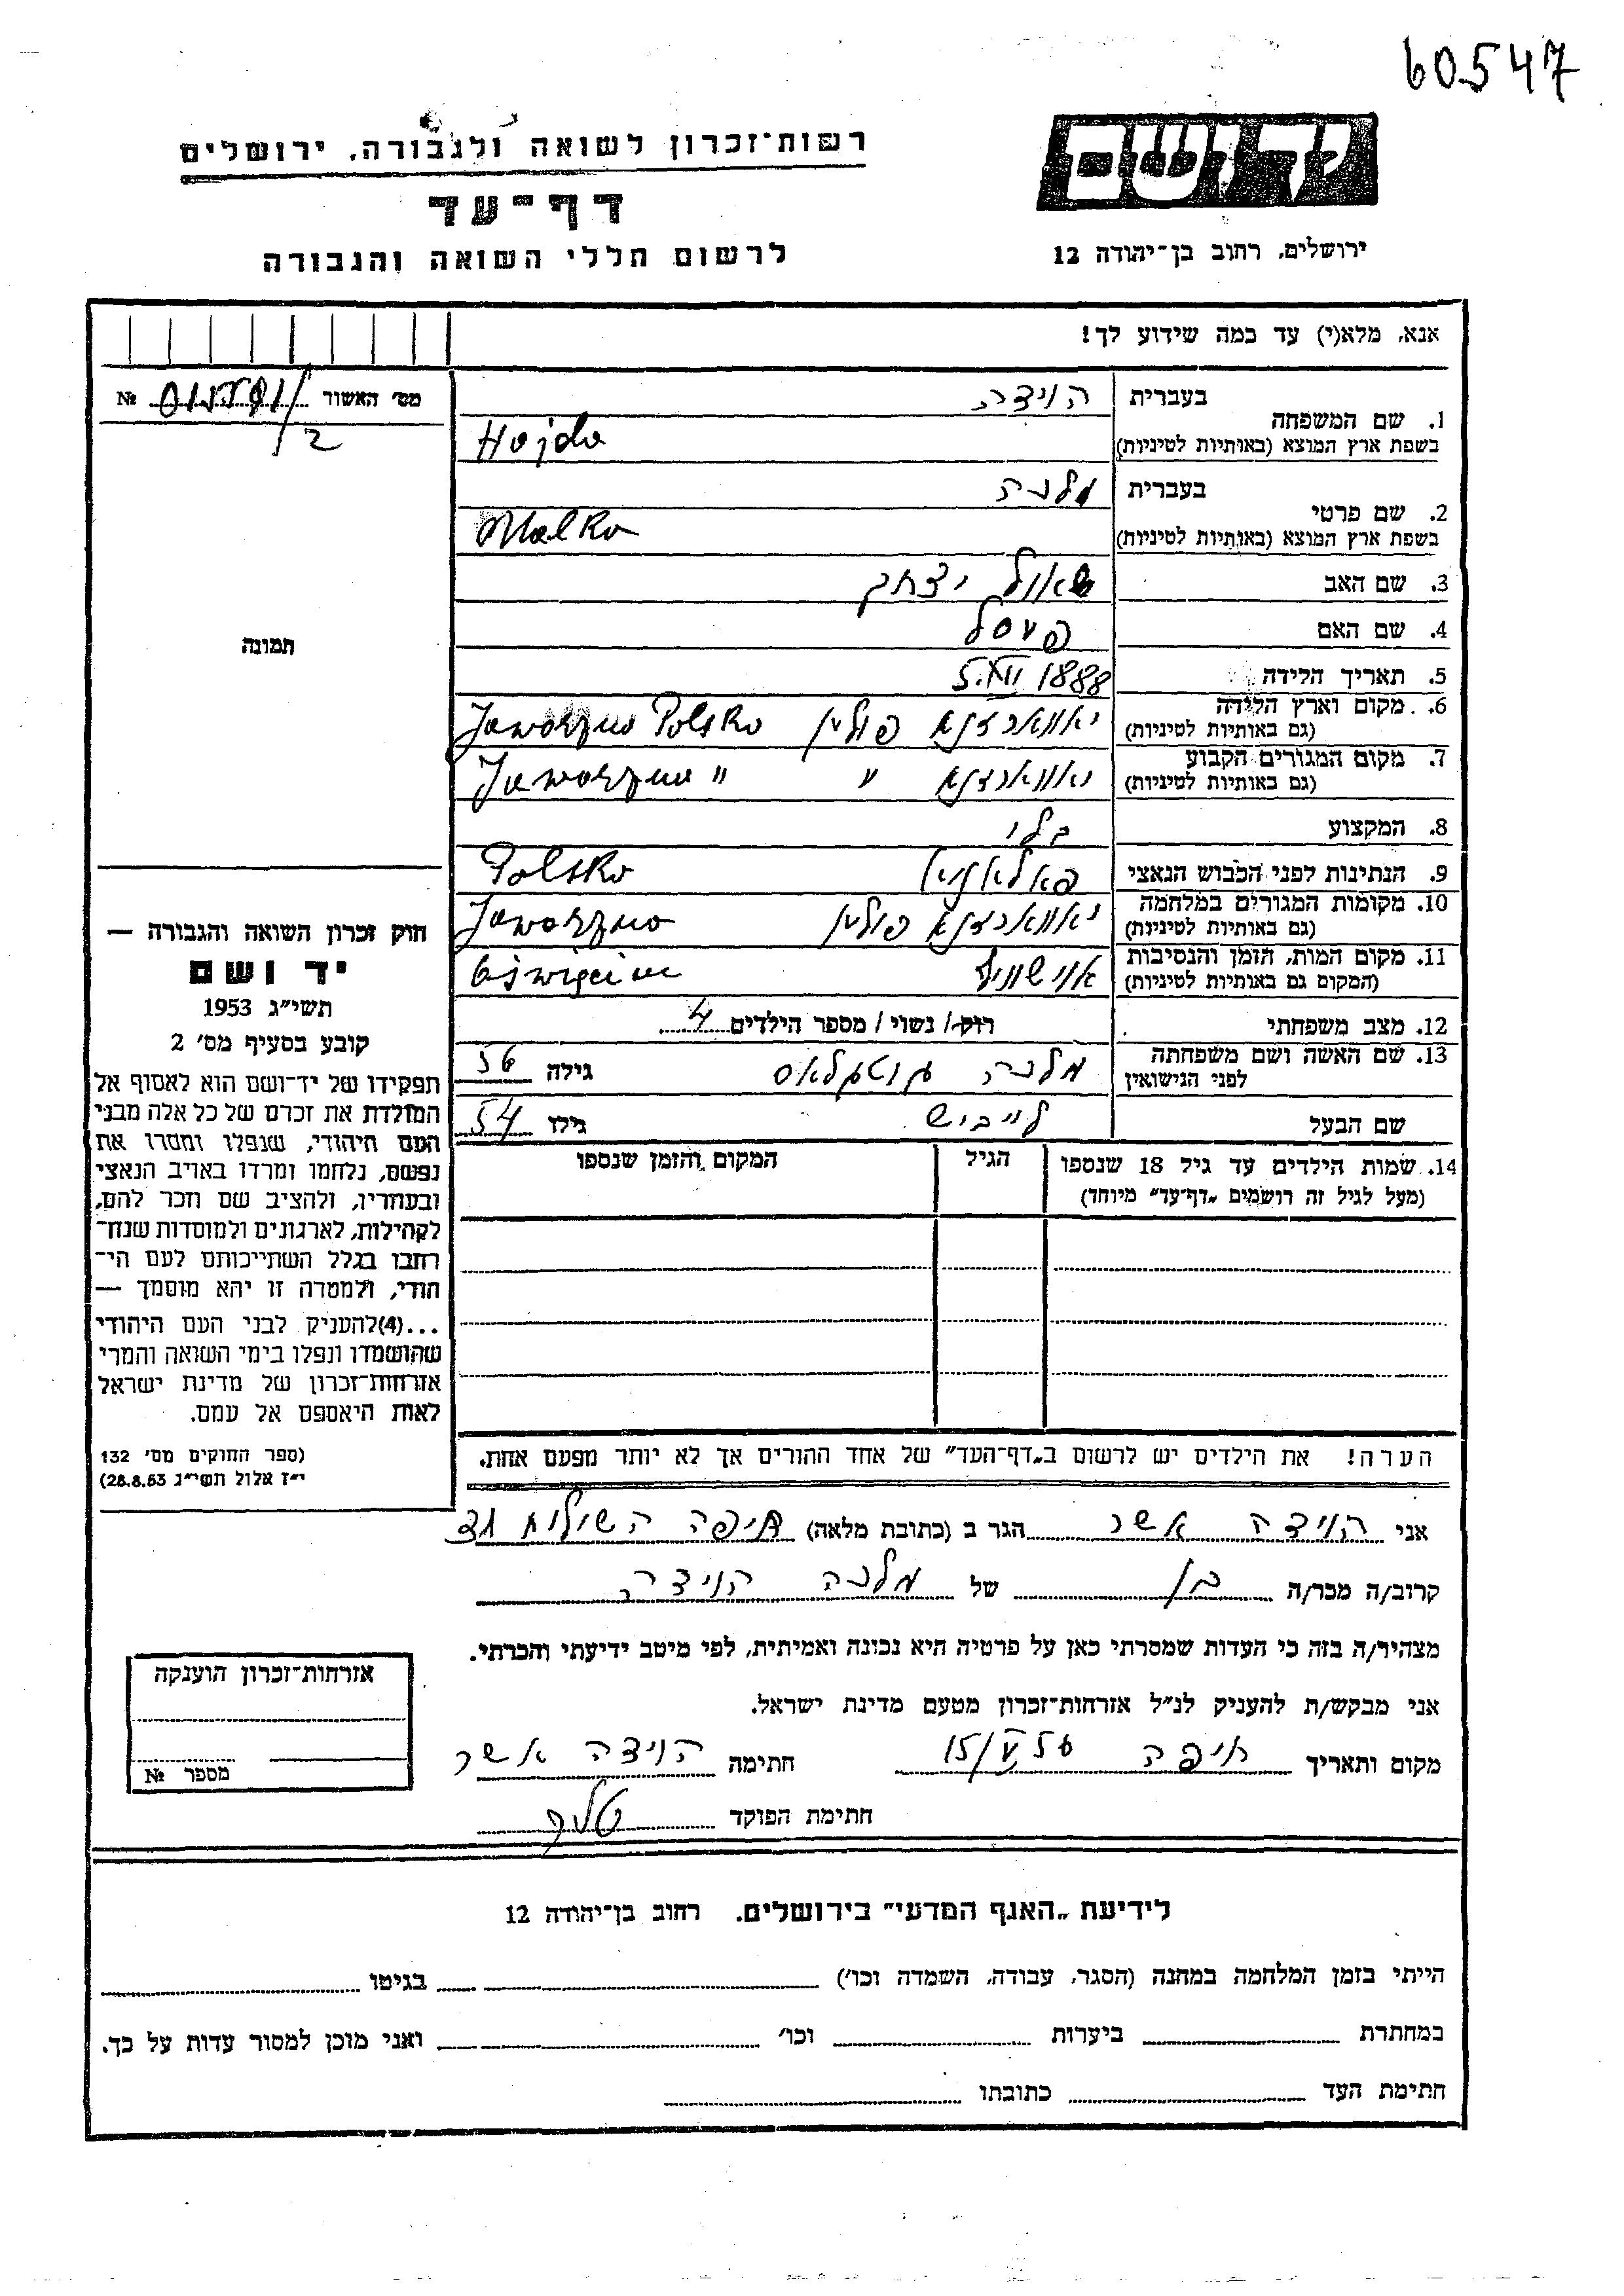 60547
יד ושם
רשות־זכרון לשואה ולגבורה, ירושלים
דף־עד
לרשום חללי השואה והגבורה
ירושלים, רחוב בן־יהודה 12
אנא, מלא(י) עד כמה שידוע לך!
מס׳ האשור №
/2
1. שם המשפחה
בעברית הוידה
בשפת ארץ המוצא (באותיות לטיניות) Hojda
2. שם פרטי
בעברית מלכה
בשפת ארץ המוצא (באותיות לטיניות) Malka
3. שם האב שאול יצחק
4. שם האם פעסל
5. תאריך הלידה 1888
6. מקום וארץ הלידה יאווארזנא פולין Jaworzno Polska
(גם באותיות לטיניות)
7. מקום המגורים הקבוע יאווארזנא " Jaworzno "
(גם באותיות לטיניות)
8. המקצוע בלי
9. הנתינות לפני הכבוש הנאצי Polska
10. מקומות המגורים במלחמה יאווארזנא פולין Jaworzno
(גם באותיות לטיניות)
11. מקום המות, הזמן והנסיבות אוישוויץ Oświęcim
(המקום גם באותיות לטיניות)
12. מצב משפחתי רוק/ נשוי/ מספר הילדים 4
13. שם האשה ושם משפחתה מלכה גוטעלאס גילה 56
לפני הנישואין
שם הבעל לייביש גילו 54
14. שמות הילדים עד גיל 18 שנספו הגיל המקום והזמן שנספו
(מעל לגיל זה רושמים „דף־עד” מיוחד)
הערה! את הילדים יש לרשום ב„דף־העד” של אחד ההורים אך לא יותר מפעם אחת.
תמונה
חוק זכרון השואה והגבורה —
יד ושם
תשי״ג 1953
קובע בסעיף מס׳ 2
תפקידו של יד־ושם הוא לאסוף אל
המולדת את זכרם של כל אלה מבני
העם היהודי, שנפלו ומסרו את
נפשם, נלחמו ומרדו באויב הנאצי
ובעוזריו, ולהציב שם וזכר להם,
לקהילות, לארגונים ולמוסדות שנח־
רחבו בגלל השתייכותם לעם הי־
הודי, ולמטרה זו יהא מוסמך —
...(4)להעניק לבני העם היהודי
שהושמדו ונפלו בימי השואה והמרי
אזרחות־זכרון של מדינת ישראל
לאות היאספם אל עמם.
(ספר החוקים מס׳ 132
י״ז אלול תשי״ג 28.8.53)
אני הוידה אשר הגר ב (כתובת מלאה) חיפה השילוח
קרוב/ה מכר/ה בן של מלכה הוידה
מצהיר/ה בזה כי העדות שמסרתי כאן על פרטיה היא נכונה ואמיתית, לפי מיטב ידיעתי והכרתי.
אני מבקש/ת להעניק לנ״ל אזרחות־זכרון מטעם מדינת ישראל.
מקום ותאריך חיפה חתימה הוידה אשר
חתימת הפוקד
אזרחות־זכרון הוענקה
מספר №
לידיעת „האגף המדעי” בירושלים. רחוב בן־יהודה 12
הייתי בזמן המלחמה במחנה (הסגר, עבודה, השמדה וכו׳) בגיטו
במחתרת ביערות וכו׳ ואני מוכן למסור עדות על כך.
חתימת העד כתובתו